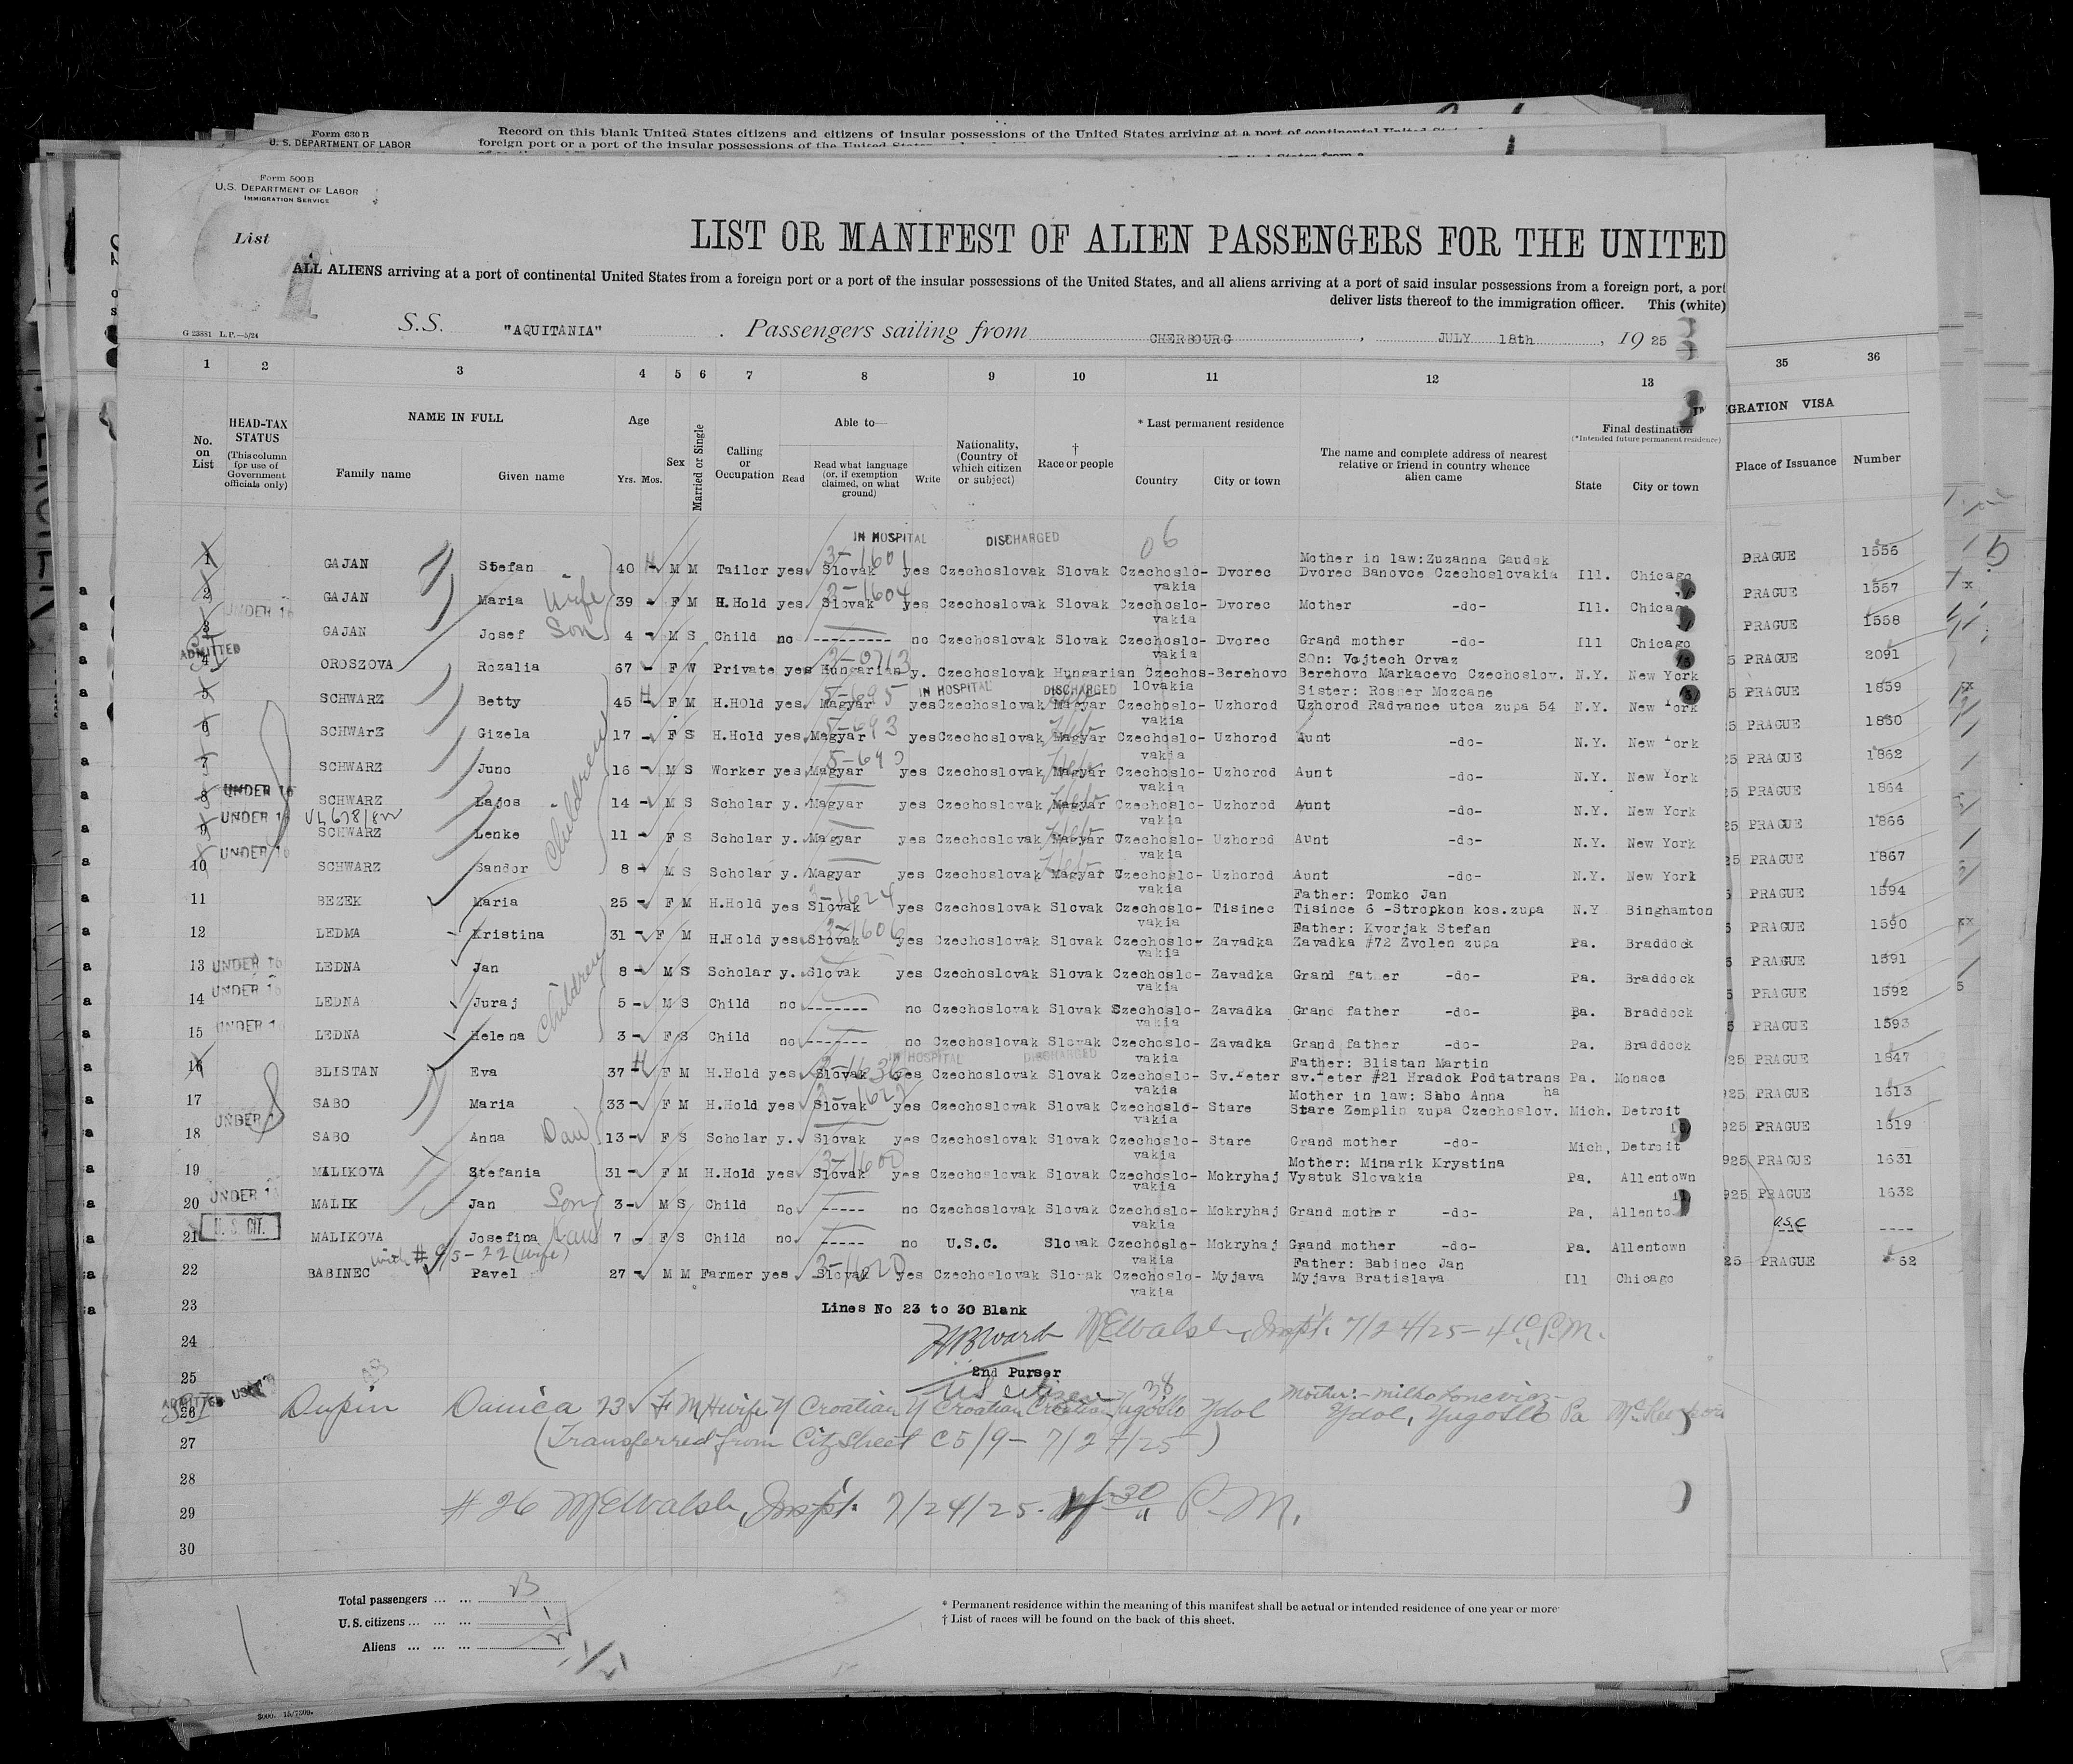 Form 630 B
U. S. DEPARTMENT OF LABOR
Record on this blank United States citizens and citizens of insular possessions of the United States arriving at a port of continental United
foreign port or a port of the insular possessions of the United States
Form 500 B
U.S. DEPARTMENT OF LABOR
IMMIGRATION SERVICE
List
LIST OR MANIFEST OF ALIEN PASSENGERS FOR THE UNITED
ALL ALIENS arriving at a port of continental United States from a foreign port or a port of the insular possessions of the United States, and all aliens arriving at a port of said insular possessions from a foreign port, a port
deliver lists thereof to the immigration officer. This (white)
G 23881 L. P.—5/24
S.S. "AQUITANIA". Passengers sailing from CHERBOURG, JULY 18th, 1925
1 2 3 4 5 6 7 8 9 10 11 12 13 35 36
No. on List
HEAD-TAX STATUS (This column for use of Government officials only)
NAME IN FULL
Family name Given name
Age
Yrs. Mos.
Sex
Married or Single
Calling or Occupation
Able to—
Read
Read what language (or, if exemption claimed, on what ground)
Write
Nationality, (Country of which citizen or subject)
† Race or people
* Last permanent residence
Country City or town
The name and complete address of nearest relative or friend in country whence alien came
Final destination
(*Intended future permanent residence)
State City or town
IGRATION VISA
Place of Issuance Number
IN HOSPITAL DISCHARGED 06
3-1601 Mother in law:Zuzanna Gaudek
1 GAJAN Stefan 40 M M Tailor yes Slovak yes Czechoslovak Slovak Czechoslo-vakia Dvorec Dvorec Banovce Czechoslovakia Ill. Chicago PRAGUE 1556
3-1604
2 GAJAN Maria Wife 39 - F M H.Hold yes Slovak yes Czechoslovak Slovak Czechoslo-vakia Dvorec Mother -do- Ill. Chicago PRAGUE 1557
UNDER 16
3 GAJAN Josef Son 4 - M S Child no --------- no Czechoslovak Slovak Czechoslo-vakia Dvorec Grand mother -do- Ill Chicago PRAGUE 1558
ADMITTED SOn: Vojtech Orvaz
4 OROSZOVA Rozalia 67 - F W Private yes Hungarian y. Czechoslovak Hungarian Czechos-lOvakia Berehovo Berehovo Markacevo Czechoslov. N.Y. New York 5 PRAGUE 2091
5-695 IN HOSPITAL DISCHARGED Sister: Rosner Mozcane
5 SCHWARZ Betty 45 F M H.HOld yes Magyar yes Czechoslovak Magyar Czechoslo-vakia Uzhorod Uzhorod Radvance utca zupa 54 N.Y. New York 5 PRAGUE 1859
5-693
6 SCHWArZ Gizela 17 - F S H.Hold yes Magyar yes Czechoslovak Magyar Czechoslo-vakia Uzhorod Aunt -do- N.Y. New York 5 PRAGUE 1860
7 SCHWARZ Juno 16 - M S Worker yes Magyar yes Czechoslovak Magyar Czechoslo-vakia Uzhorod Aunt -do- N.Y. New York 25 PRAGUE 1862
8 UNDER 16 SCHWARZ Lajos Children 14 - M S Scholar y. Magyar yes Czechoslovak Magyar Czechoslo-vakia Uzhorod Aunt -do- N.Y. New York 25 PRAGUE 1864
9 UNDER 16 SCHWARZ Lenke 11 - F S Scholar y. Magyar yes Czechoslovak Magyar Czechoslo-vakia Uzhorod Aunt -do- N.Y. New York 25 PRAGUE 1866
10 UNDER 16 SCHWARZ Sandor 8 - M S Scholar y. Magyar yes Czechoslovak Magyar Czechoslo-vakia Uzhorod Aunt -do- N.Y. New York 25 PRAGUE 1867
3-1624 Father: Tomko Jan
11 BEZEK Maria 25 - F M H.Hold yes Slovak yes Czechoslovak Slovak Czechoslo-vakia Tisinec Tisince 6 -Stropkon kos.zupa N.Y Binghamton 5 PRAGUE 1594
3-1606 Father: Kvorjak Stefan
12 LEDMA Kristina 31 - F M H.Hold yes Slovak yes Czechoslovak Slovak Czechoslo-vakia Zavadka Zavadka #72 Zvolen zupa Pa. Braddock 5 PRAGUE 1590
13 UNDER 16 LEDNA Jan Children 8 - M S Scholar y. Slovak yes Czechoslovak Slovak Czechoslo-vakia Zavadka Grand father -do- Pa. Braddock 5 PRAGUE 1591
14 UNDER 16 LEDNA Juraj 5 - M S Child no ------- no Czechoslovak Slovak Czechoslo-vakia Zavadka Grand father -do- Pa. Braddock 5 PRAGUE 1592
15 UNDER 16 LEDNA Helena 3 - F S Child no ------- no Czechoslovak Slovak Czechoslo-vakia Zavadka Grand father -do- Pa. Braddock 5 PRAGUE 1593
IN HOSPITAL DISCHARGED Father: Blistan Martin
16 BLISTAN Eva 37 F M H.Hold yes Slovak yes Czechoslovak Slovak Czechoslo-vakia Sv.Peter sv.Peter #21 Hradok Podtatransha Pa. Monaca 925 PRAGUE 1847
Mother in law: Sabo Anna
17 SABO Maria 33 - F M H.Hold yes Slovak yes Czechoslovak Slovak Czechoslo-vakia Stare Stare Zemplin zupa Czechoslov. Mich. Detroit 925 PRAGUE 1613
UNDER 16
18 SABO Anna Dau 13 - F S Scholar y. Slovak yes Czechoslovak Slovak Czechoslo-vakia Stare Grand mother -do- Mich, Detroit 925 PRAGUE 1619
3-1600 Mother: Minarik Krystina
19 MALIKOVA Stefania 31 - F M H.Hold yes Slovak yes Czechoslovak Slovak Czechoslo-vakia Mokryhaj Vystuk Slovakia Pa. Allentown 925 PRAGUE 1631
20 UNDER 16 MALIK Jan Son 3 - M S Child no ----- no Czechoslovak Slovak Czechoslo-vakia Mokryhaj Grand mother -do- Pa, Allento 925 PRAGUE 1632
21 U. S. CIT. MALIKOVA Josefina Dau 7 - F S Child no ----- no U.S.C. Slovak Czechoslo-vakia Mokryhaj Grand mother -do- Pa. Allentown U.S.C ----
with # 9/5-22 (wife) Father: Babinec Jan
22 BABINEC Pavel 27 - M M Farmer yes Slovak yes Czechoslovak Slovak Czechoslo-vakia Myjava Myjava Bratislava Ill Chicago 25 PRAGUE 62
23 Lines No 23 to 30 Blank
24 HBWard McEWalsh, Inspt. 7/24/25 - 4 10 P.M.
25 2nd Purser
ADMITTED US citizen 38 Mother:-
26 Dupin Danica 23 F M Hwife Y Croatian Y Croatian Yugoslo Ydol Ydol, Yugoslo Pa
27 (Transferred from Cit Sheet C5/9 - 7/24/25)
28
29 # 26 McEWalsh, Inspt. 7/24/25. 4-30 P.M.
30
Total passengers ... ...
U.S. citizens ... ... ... 1
Aliens ... ... ...
* Permanent residence within the meaning of this manifest shall be actual or intended residence of one year or more
† List of races will be found on the back of this sheet.